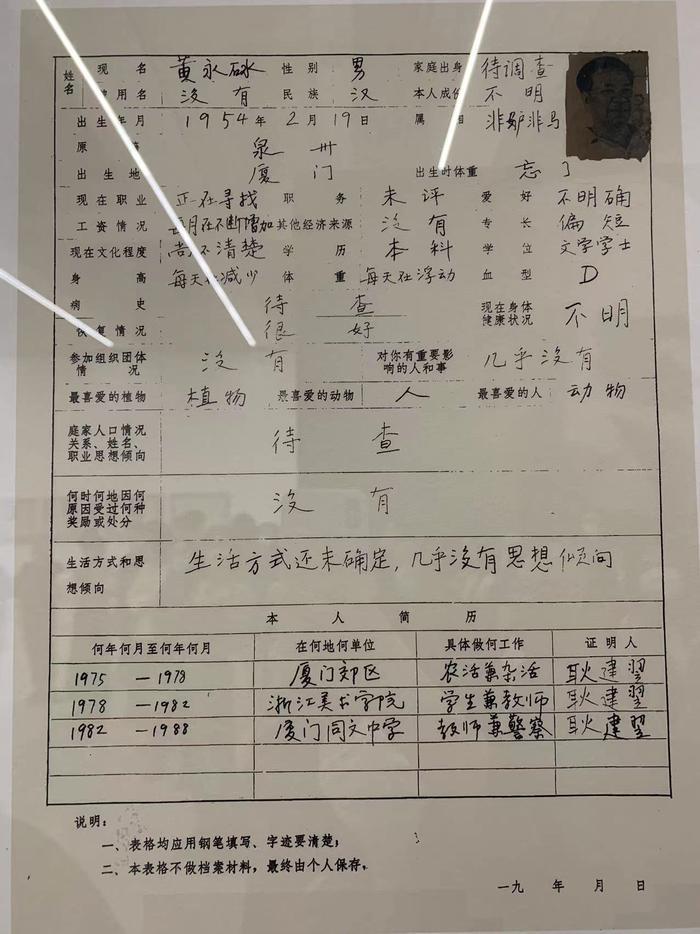 姓名 现名 黄永砯 性别 男 家庭出身 待调查
曾用名 没有 民族 汉 本人成份 不明
出生年月 1954年2月19日 属相 非驴非马
原籍 泉州
出生地 厦门 出生时体重 忘了
现在职业 正在寻找 职务 未评 爱好 不明确
工资情况 每月在不断增加 其他经济来源 没有 专长 偏短
现在文化程度 尚不清楚 学历 本科 学位 文学学士
身高 每天在减少 体重 每天在浮动 血型 D
病史 待查 现在身体健康状况 不明
恢复情况 很好
参加组织团体情况 没有 对你有重要影响的人和事 几乎没有
最喜爱的植物 植物 最喜爱的动物 人 最喜爱的人 动物
庭家人口情况
关系、姓名、 待查
职业思想倾向
何时何地因何
原因受过何种 没有
奖励或处分
生活方式和思想倾向 生活方式还未确定,几乎没有思想倾向
本人简历
何年何月至何年何月 在何地何单位 具体做何工作 证明人
1975—1978 厦门郊区 农活兼杂活 耿建翌
1978—1982 浙江美术学院 学生兼教师 耿建翌
1982—1988 厦门同文中学 教师兼警察 耿建翌
说明:
一、表格均应用钢笔填写、字迹要清楚;
二、本表格不做档案材料,最终由个人保存。
一九 年 月 日